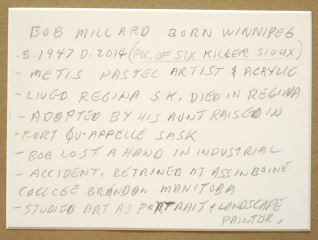 BOB MILLARD BORN WINNIPEG
-B.1947 D.2014 (PIC. OF SIX KILLER SIOUX)
- METIS PASTEL ARTIST & ACRYLIC
- LIVED REGINA SK, DIED IN REGINA
- ADOPTED BY HIS AUNT RAISED IN
- FORT QU-APPELLE SASK
- BOB LOST A HAND IN INDUSTRIAL
- ACCIDENT, RETRINED AT ASSINBOINE
COLLEGE BRANDON MANITOBA
- STUDIED ART AS PORTRAIT & LANDSCAPE
PAINTER,